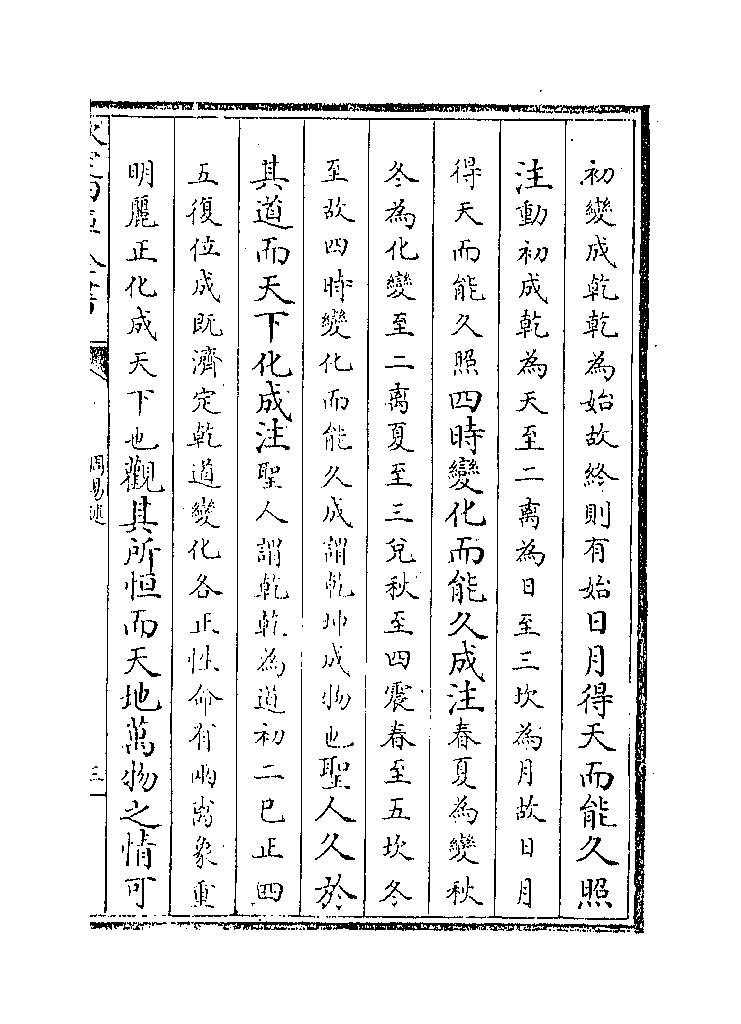 初變成乾乾為始故終則有始日月得天而能久照
注動初成乾為天至二离為日至三坎為月故日月
得天而能久照四時變化而能久成注春夏為變秋
冬為化變至二离夏至三兌秋至四震春至五坎冬
至故四時變化而能久成謂乾坤成物也聖人久於
其道而天下化成注聖人謂乾乾為道初二已正四
五復位成既濟定乾道變化各正性命有兩离象重
明麗正化成天下也觀其所恒而天地萬物之情可
周易述
三